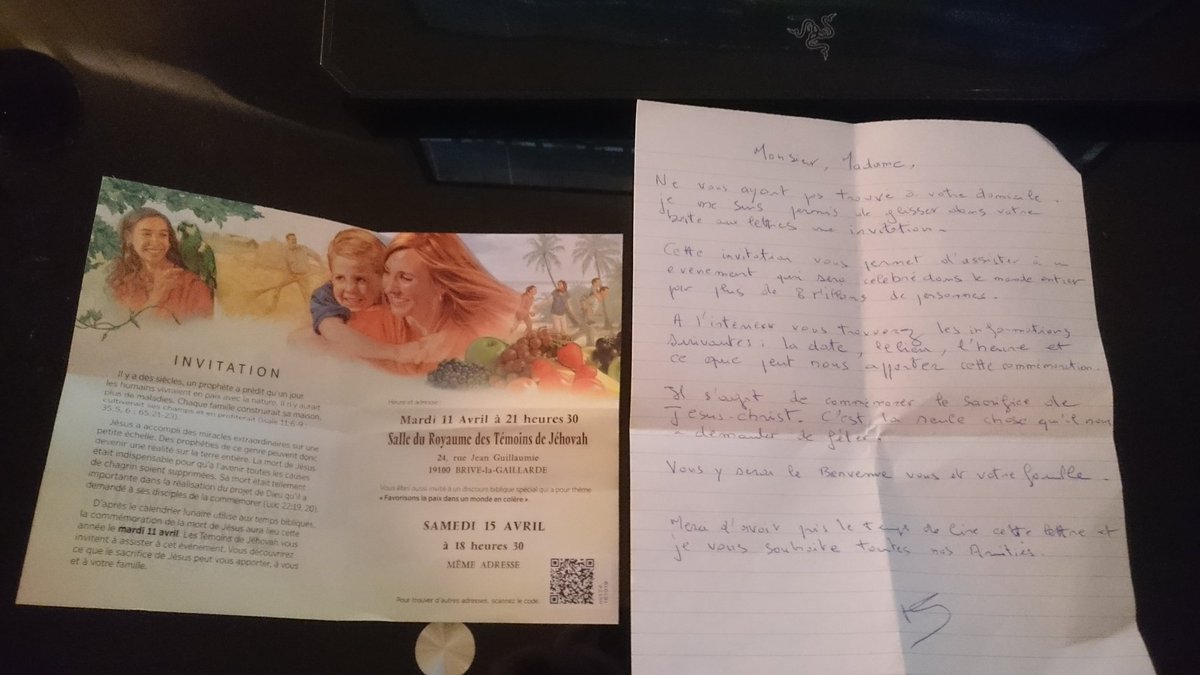 INVITATION
Il y a des siècles, un prophète a prédit qu'un jour
les humains vivraient en paix avec la nature. Il n'y aurait
plus de maladies. Chaque famille construirait sa maison,
cultiverait ses champs et en profiterait (Isaïe 11:6-9 ;
35:5, 6 ; 65:21-23).
Jésus a accompli des miracles extraordinaires sur une
petite échelle. Des prophéties de ce genre peuvent donc
devenir une réalité sur la terre entière. La mort de Jésus
était indispensable pour qu'à l'avenir toutes les causes
de chagrin soient supprimées. Sa mort était tellement
importante dans la réalisation du projet de Dieu qu'il a
demandé à ses disciples de la commémorer (Luc 22:19, 20).
D'après le calendrier lunaire utilisé aux temps bibliques,
la commémoration de la mort de Jésus aura lieu cette
année le mardi 11 avril. Les Témoins de Jéhovah vous
invitent à assister à cet événement. Vous découvrirez
ce que le sacrifice de Jésus peut vous apporter, à vous
et à votre famille.
Heure et adresse :
Mardi 11 Avril à 21 heures 30
Salle du Royaume des Témoins de Jéhovah
24, rue Jean Guillaumie
19100 BRIVE-la-GAILLARDE
Vous êtes aussi invité à un discours biblique spécial qui a pour thème
« Favorisons la paix dans un monde en colère »
SAMEDI 15 AVRIL
à 18 heures 30
MÊME ADRESSE
Pour trouver d'autres adresses, scannez le code.
Monsieur, Madame,
Ne vous ayant pas trouvé à votre domicile,
je me suis permis de glisser dans votre
boite aux lettres une invitation.
Cette invitation vous permet d'assister à un
evenement qui sera célébré dans le monde entier
par plus de 8 millions de personnes.
A l'intérieur vous trouverez les informations
suivantes : la date, le lieu, l'heure et
ce que peut nous apporter cette commémoration.
Il s'agit de commémorer le sacrifice de
Jésus-christ. C'est la seule chose qu'il nous
a demander de fêter.
Vous y serai le Bienvenue vous et votre famille.
Merci d'avoir pris le temps de lire cette lettre et
je vous souhaite toutes nos Amitiés.